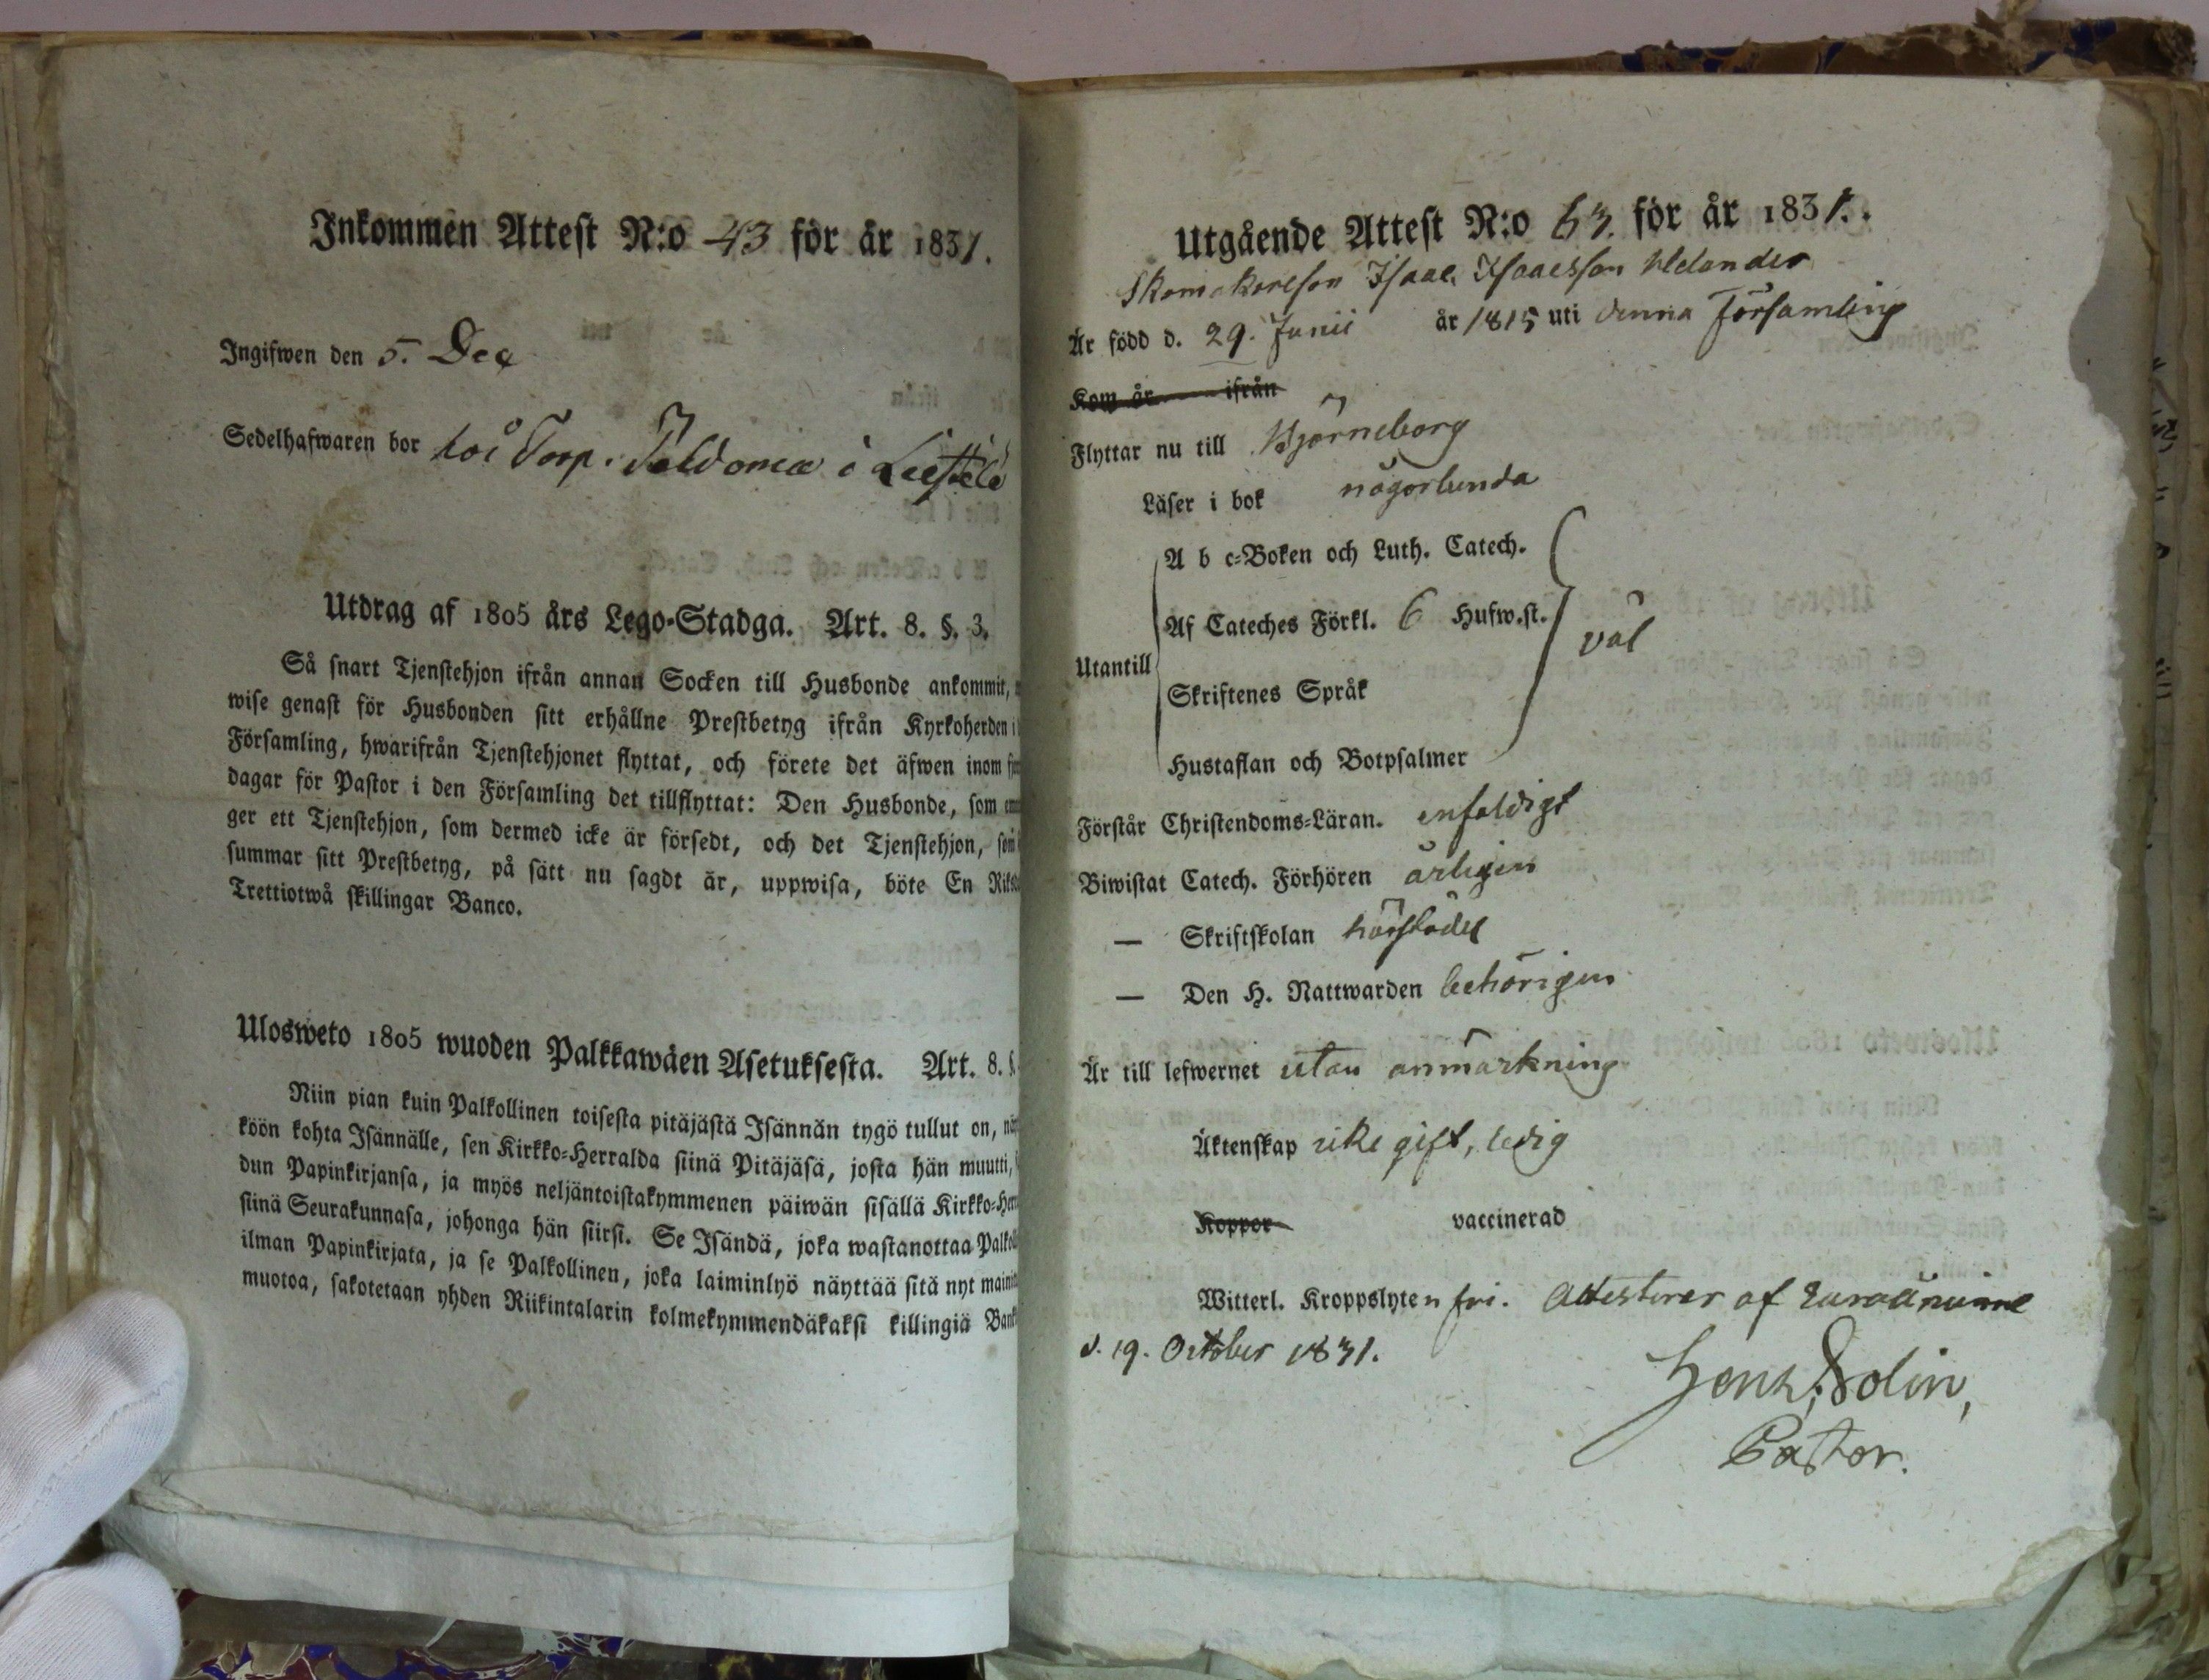 Inkommen Attest N:o 43 för år 1831.
Ingifwen den 5. Dec
Sedelhafwaren bor hos Torp.
Utdrag af 1805 års Lego-Stadga. Art. 8. §. 3.
Så snart Tjenstehjon ifrån annan Socken till Husbonde ankommit,
wise genast för Husbonden sitt erhållne Prestbetyg ifrån Kyrkoherden i
Församling, hwarifrån Tjenstehjonet flyttat, och förete det äfwen inom
dagar för Pastor i den Församling det tillflyttat: Den Husbonde, som
ger ett Tjenstehjon, som dermed icke är försedt, och det Tjenstehjon,
summar sitt Prestbetyg, på sätt nu sagdt är, uppwisa, böte En
Trettiotwå skillingar Banco.
Ulosweto 1805 wuoden Palkkawäen Asetuksesta. Art. 8.
Niin pian kuin Palkollinen toisesta pitäjästä Isännän tygö tullut on,
köön kohta Isännälle, sen Kirkko-Herralda siinä Pitäjäsä, josta hän muutti,
dun Papinkirjansa, ja myös neljäntoistakymmenen päiwän sisällä
siinä Seurakunnasa, johonga hän siirsi. Se Isändä, joka wastanottaa
ilman Papinkirjata, ja se Palkollinen, joka laiminlyö näyttää sitä nyt
muotoa, sakotetaan yhden Riikintalarin kolmekymmendäkaksi killingiä
Utgående Attest N:o 63. för år 1831.
Skomakareson Isaac Isaacsson
Är född d. 29. Junii år 1815 uti denna Församling
Kom år ifrån
Flyttar nu till Björneborg
Läser i bok någorlunda
A b c-Boken och Luth. Catech.
Af Cateches Förkl. 6 Hufw.st.
väl
Utantill
Skriftenes Språk
Hustaflan och Botpsalmer
Förstår Christendoms-Läran. enfaldigt
Biwistat Catech. Förhören årligen
— Skriftskolan
— Den H. Nattwarden behörigen
Är till lefwernet utan anmärkning
Äktenskap icke gift, ledig
Koppor vaccinerad
Witterl. Kroppslyten fri. Attesterar af Euraåminne
d. 19. October 1831.
Pastor.